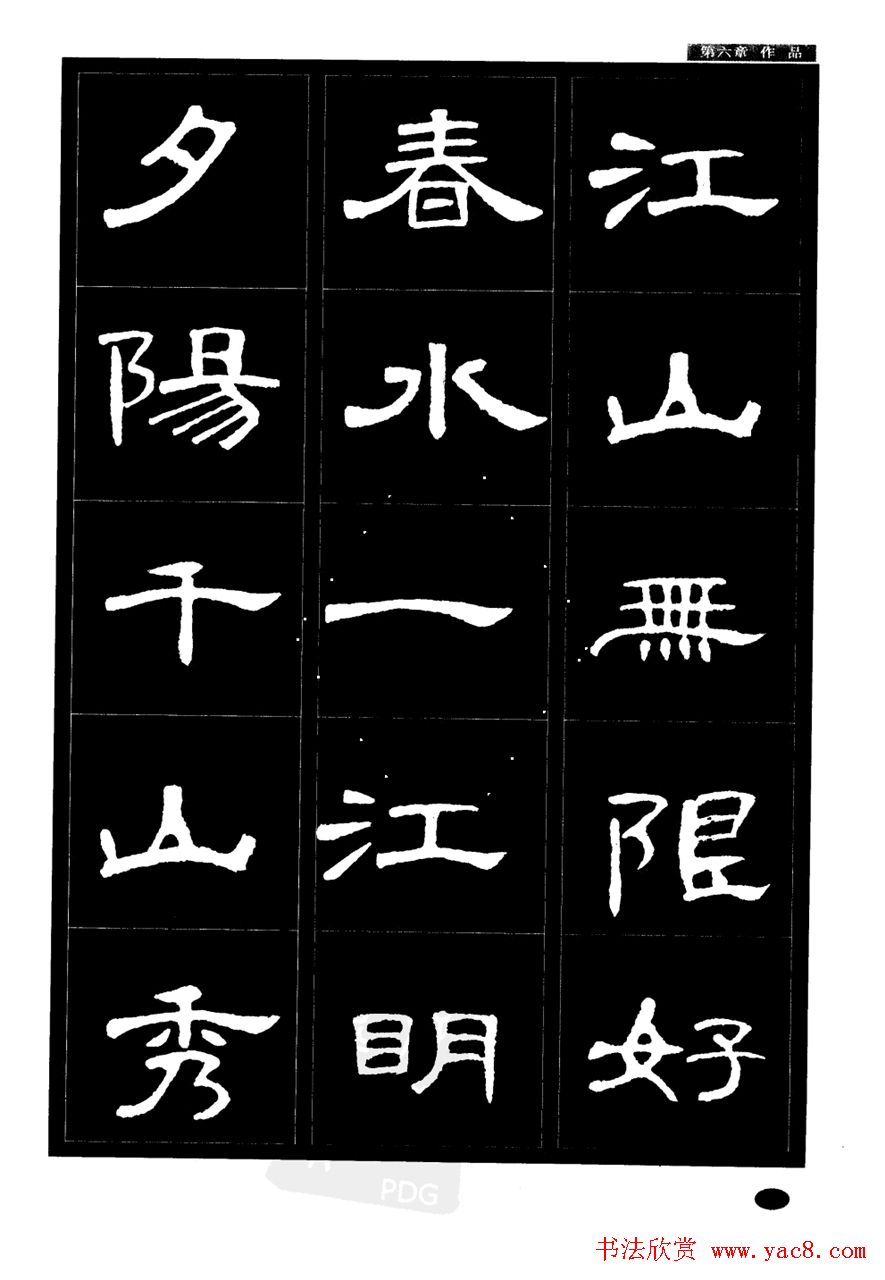 第六章 作品
江山無限好
春水一江明
夕陽千山秀
PDG
书法欣赏 www.yac8.com